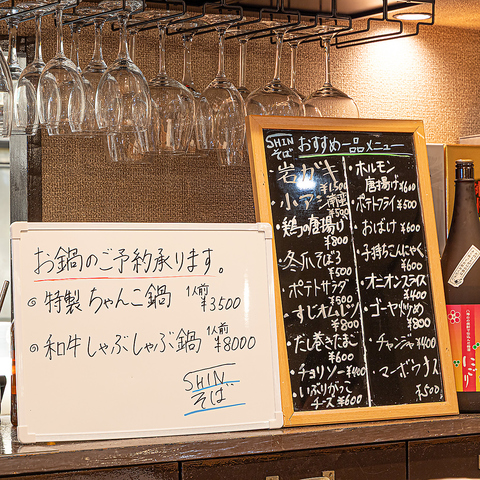 お鍋のご予約承ります。
◎ 特製ちゃんこ鍋 1人前 ¥3500
◎ 和牛しゃぶしゃぶ鍋 1人前 ¥8000
SHIN
そば
SHIN
そば
おすすめ一品メニュー
・岩ガキ
¥1,500
・小アジ南蛮
¥500
・鶏の唐揚げ
¥800
・冬瓜そぼろ
¥500
・ポテトサラダ
¥500
・すじオムレツ
¥800
・だし巻きたまご
¥600
・チョリソー ¥400
・いぶりがっこ
チーズ ¥600
・ホルモン
唐揚げ ¥600
・ポテトフライ ¥500
・おばけ ¥600
・子持ちこんにゃく
¥600
・オニオンスライス
¥400
・ゴーヤ炒め
¥800
・チャンジャ ¥400
・マーボウナス
¥500